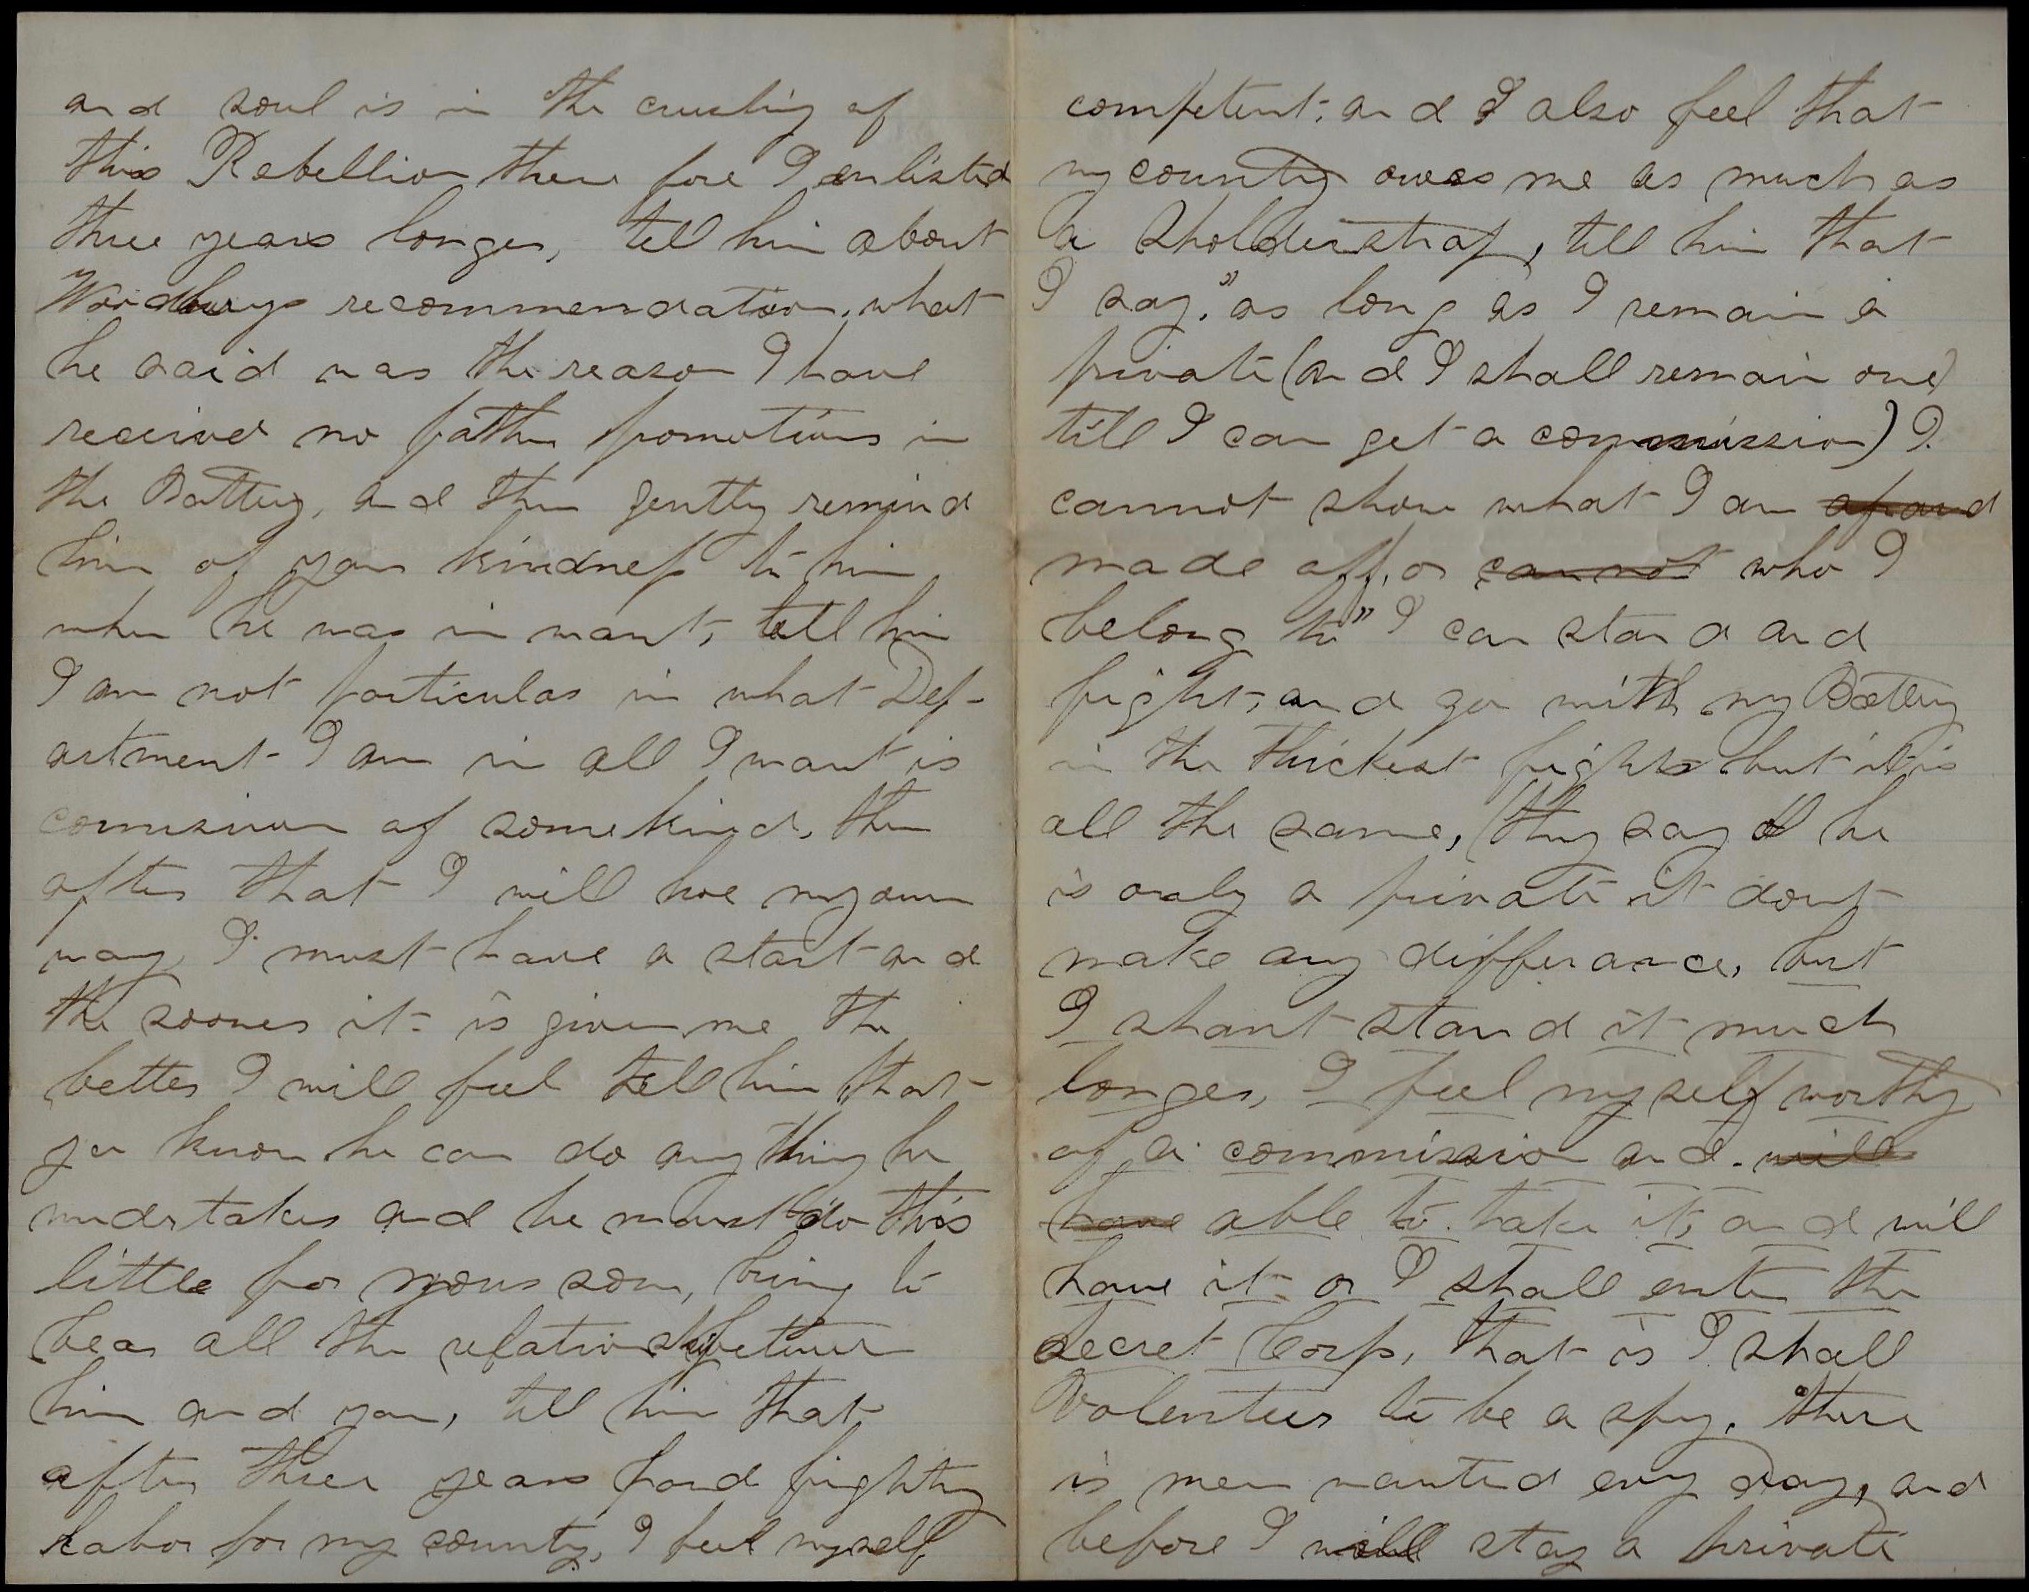 and soul is in the crushing of
this Rebellion there fore I enlisted
three years longer, tell him about
Woodburys recommendation, what
he said was the reason I have
received no father promotions in
the Battery, and then gently remind
him of your kindness to him
when he was in want, tell him
I am not particular in what Dep-
artment I am in all I want is
commision of some kind, then
after that I will hoe my own
way, I must have a start and
the sooner it is given me the
better I will feel tell him that
you know he can do any thing he
undertakes and he must do this
little for your son, bring to
bear all the relationship between
him and you, till him that
after three years hard fighting
labor for my county, I feel myself
competent, and I also feel that
my country owes me as much as
a sholderstrap, till him that
I say, "as long as I remain a
private (and I shall remain one
till I can get a commission) I
cannot show what I am
made off, or cannot who I
belong to" I can stand and
fight, and go with my Battery
in the thickest fights but it is
all the same, they say he
is only a private it dont
make any differance, but
I shant stand it much
longer, I feel myself worthy
of a commission and will
have able to take it, and will
have it or I shall enter the
Secret Corps, that is I shall
Volenteer to be a spy, there
is men wanted evry day, and
before I will stay a private